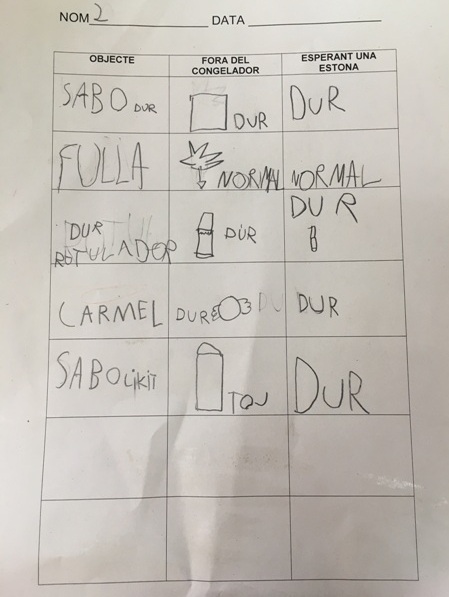 NOM 2 DATA
OBJECTE FORA DEL CONGELADOR ESPERANT UNA ESTONA
SABO DUR DUR DUR
FULLA NORMAL NORMAL
DUR ROTULADOR DUR DUR
CARMEL DUR DU DUR
SABO LIKIT TOU DUR